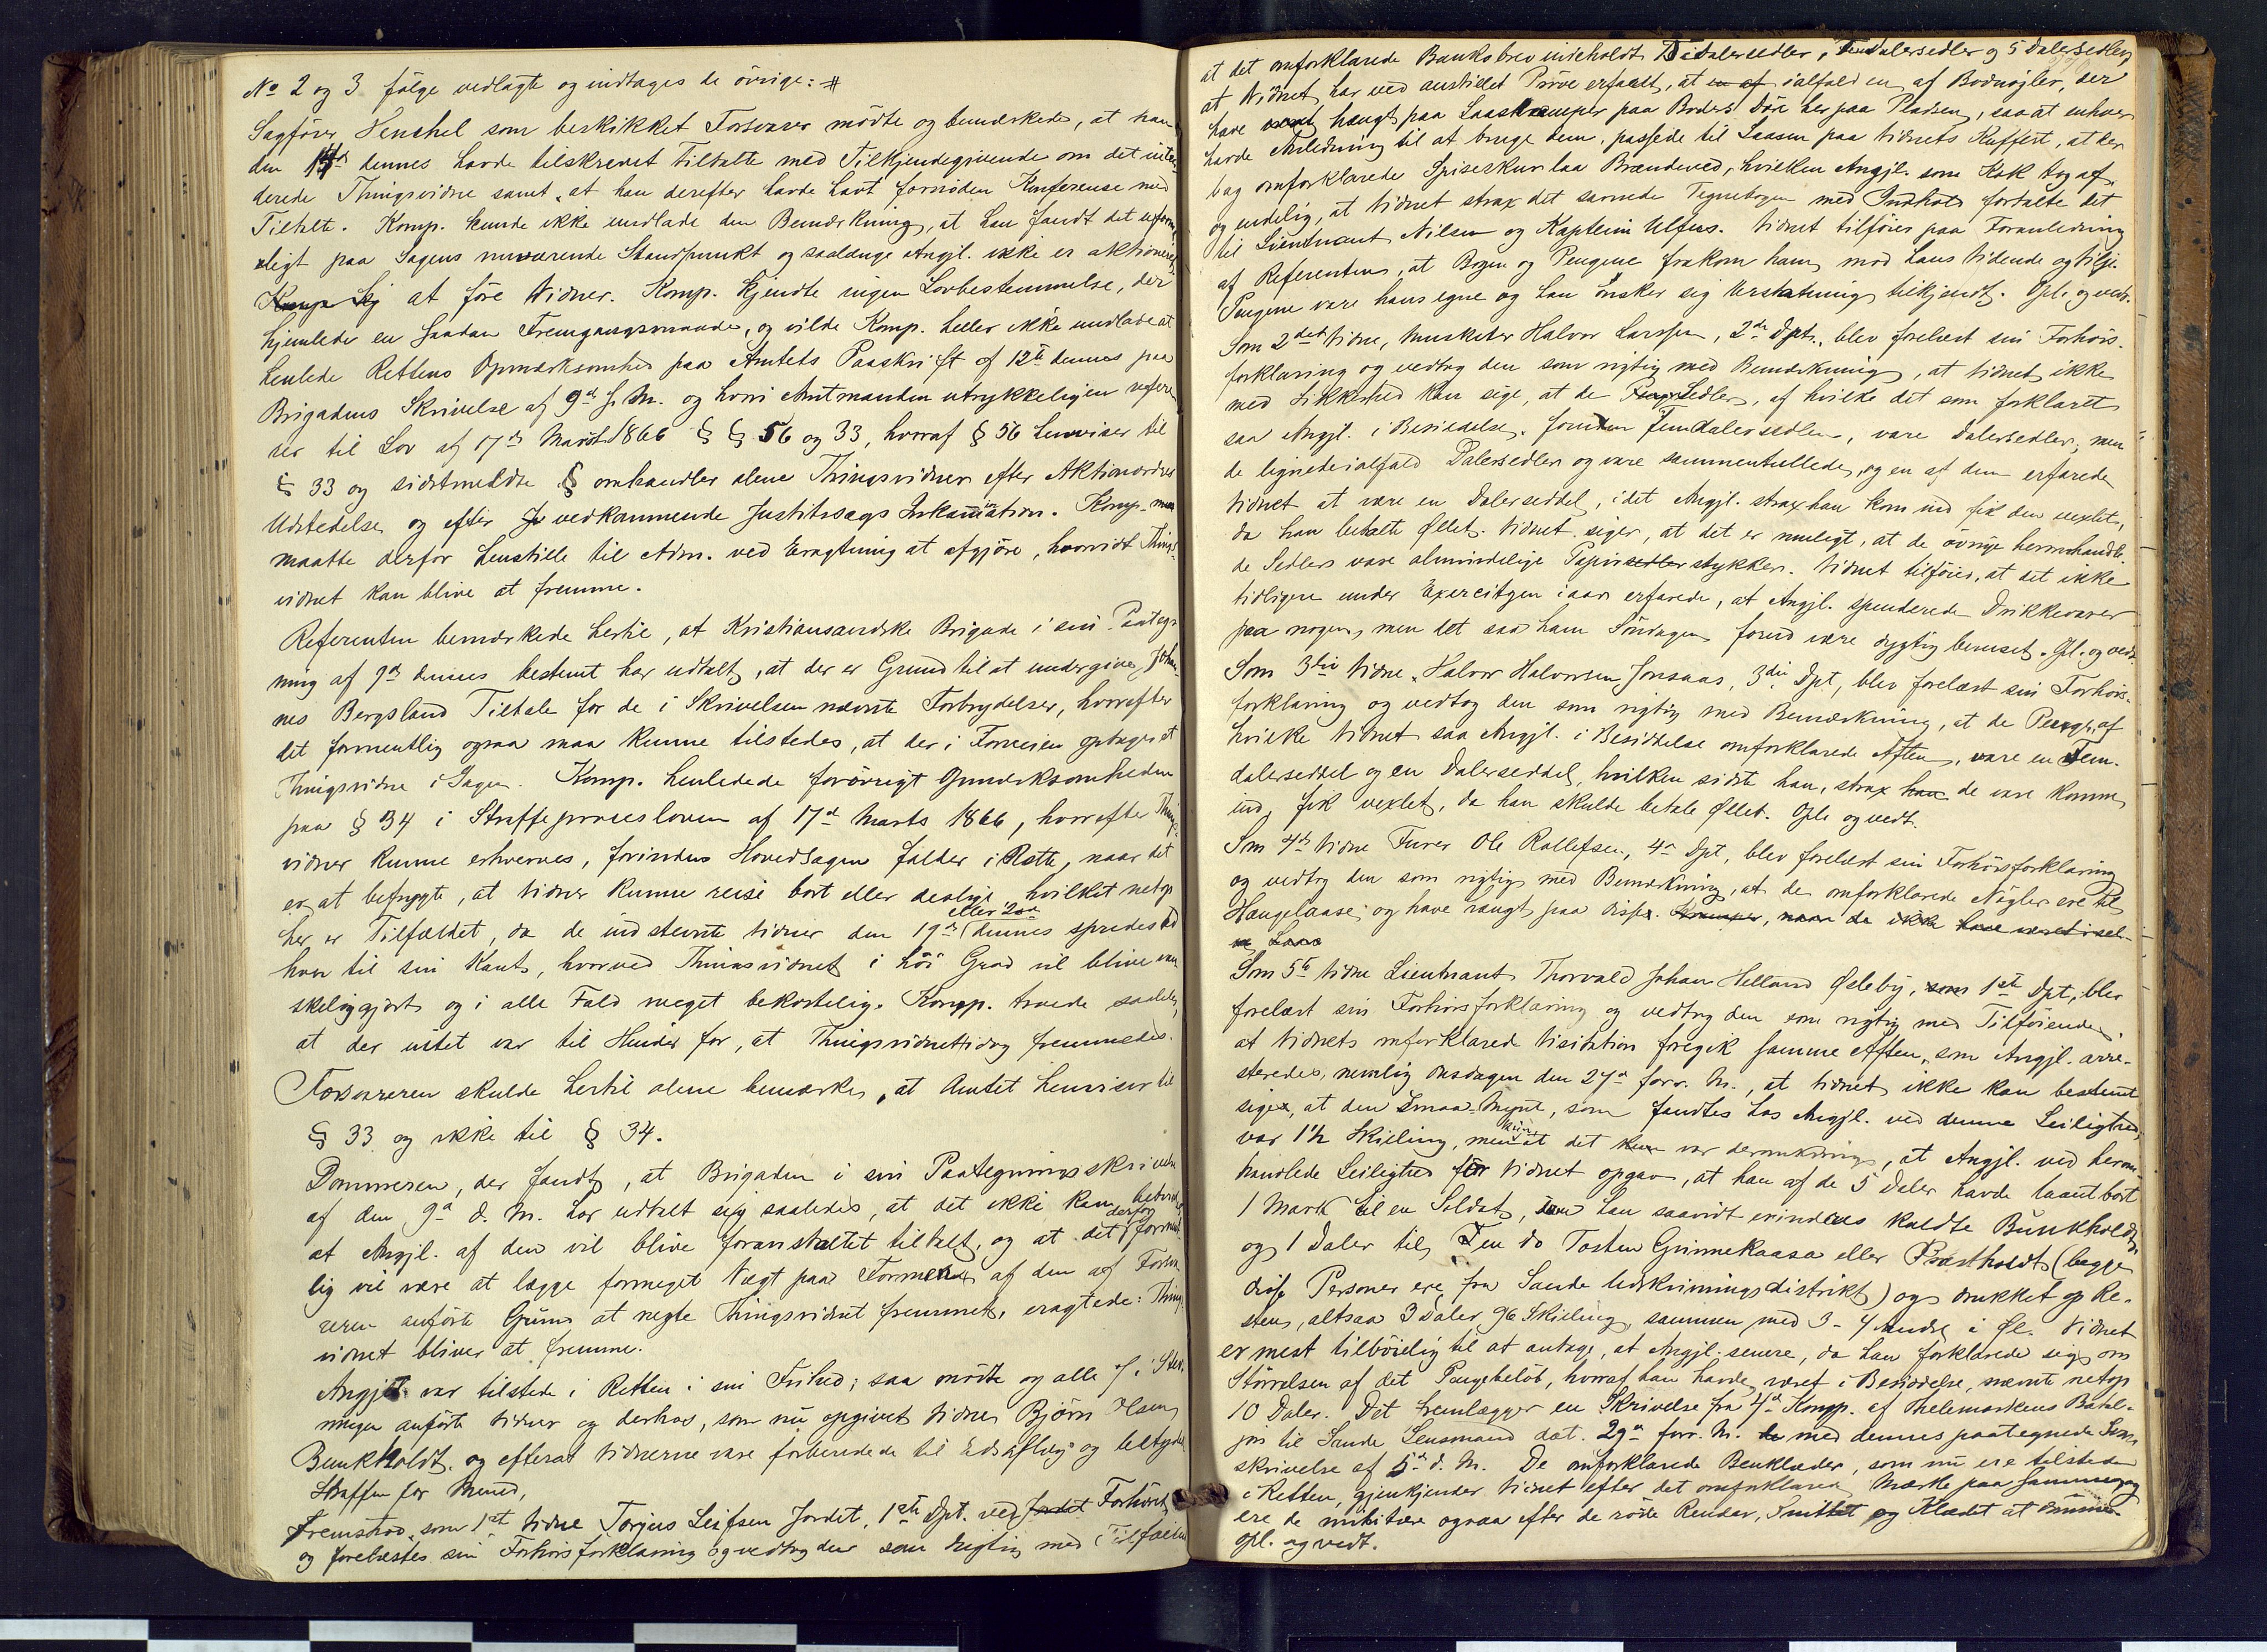 No 2 og 3 følge vedlagte og indtages de øvrige: #
Sagfører Henschel som beskikket Forsvarer mødte og bemærkede, at han
den 15de dennes havde tilskrevet Tiltalte med Tilkjendegivende om det inten-
derede Thingsvidne samt at han derefter havde havt fornøden Konferense med
Tiltalte. Komp. kunde ikke undlade den Bemærkning, at han fandt det uforme-
ligt paa Sagens nuværende Standpunkt og saalænge Angjl. ikke er aktioneret
at føre Vidner. Komp. kjendte ingen Lovbestemmelse, der
hjemlede en saadan Fremgangsmaade, og vilde Komp. heller ikke undlade at
henlede Rettens Opmærksomhed paa Amtets Paaskrift af 12te dennes paa
Brigadens Skrivelse af 9de s. M. og hvori Amtmanden utrykkeligen refere-
rer til Lov af 17de Marts 1866 § § 56 og 33, hvoraf § 56 henviser til
§ 33 og sidstmeldte § omhandler alene Thingsvidner efter Aktionsordres
Udstedelse og efter vedkommende Justitssags Inkamination. Komp.
maatte derfor henstille til Adm. ved Eragtning at afgjøre, hvorvidt Things-
vidnet kan blive at fremme.
Referenten bemærkede hertil, at Kristiansandske Brigade i sin Paateg-
ning af 9de dennes bestemt har udtalt, at der er Grund til at undergive Johan-
nes Bergsland Tiltale for de i Skrivelsen nævnte Forbrydelser, hvorefter
det formentlig ogsaa maa kunne tilstedes, at der i Forveien optages et
Thingsvidne i Sagen. Komp. henledede forøvrigt Opmærksomheden
paa § 34 i Straffeprocesloven af 17de Marts 1866, hvorefter Things-
vidner kunne erhverves, forinden Hovedsagen falder i Rette, naar det
er at befrygte, at Vidner kunne reise bort eller deslige hvilket netop
her er Tilfældet, da de indstevnte Vidner den 19de eller 20de dennes spredes
hver til sin Kant, hvorved Thingsvidnet i høi Grad vil blive van-
skeliggjort og i alle Fald meget bekostelig. Komp. troede saaledes,
at der intet var til Hinder for, at Thingsvidnet idag fremmedes.
Forsvareren skulde hertil alene bemærke, at Amtet henviser til
§ 33 og ikke til § 34.
Dommeren, der fandt, at Brigaden i sin Paategningsskrivelse
af den 9de d. M. har udtalt sig saaledes, at det ikke kan betvivles,
at Angjl. af den vil blive foranstaltet tiltalt, og at det derfor forment-
lig vil være at lægge formeget Vægt paa Formen af den af Forsva-
reren anførte Grund at negte Thingsvidnet fremmet, eragtede: Things-
vidnet bliver at fremme.
Angjl. var tilstede i Retten i sin Frihed; saa mødte og alle de i Stev-
ningen anførte Vidner og derhos, som nu opgivet Vidne Bjørn Olsen
Bunkholdt. og efterat Vidnerne vare forberedede til Edsaflæg og betydet
Straffen for Mened,
Fremstod som 1ste Vidne Torjus Leifsen Jordet, 1ste Dpt. ved Forhøret,
og forelæstes sin Forhørsforklaring og vedtog den som rigtig med Tilføiende
at det omforklarede Banksbrev indeholdt Tidalersedler, Femdalersedler og 5 Dalersedler,
at Vidnet har ved anstillet Prøve erfaret, at ialfald en af Bodnøgler, der
have hængt paa Laaskramper paa Bodens Dør her paa Pladsen, saaat enhver
havde Anledning til at bruge dem, passede til Laasen paa Vidnets Kuffert, at der
bag omforklarede Spiseskur laa Brændeved, hvilken Angjl. som Kok tog af,
og endelig, at Vidnet strax det savnede Tegnebogen med Indhold fortalte det
til Lieutnant Nilsen og Kaptein Ulfers. Vidnet tilføier paa Foranledning
af Referenten, at Bogen og Pengene frakom ham mod hans Vidende og Vilje.
Pengene vare hans egne og han ønsker sig Erstatning tilkjendt. Opl. og vedt.
Som 2det Vidne, Musketer Halvor Larssen, 2de Dpt., blev forelæst sin Forhørs-
forklaring og vedtog den som rigtig med Bemærkning, at Vidnet ikke
med Sikkerhed kan sige, at de Sedler, af hvilke det som forklaret
saa Angjl. i Besiddelse, foruden Femdalersedlen, vare Dalersedler, men
de lignede ialfald Dalersedler og vare sammenrullede, og en af dem erfarede
Vidnet at være en Dalerseddel, idet Angjl. strax han kom ind fik den vexlet,
da han betalte Øllet. Vidnet siger, at det er muligt, at de øvrige heromhandle-
de Sedler vare almindelige Papirstykker. Vidnet tilføier, at det ikke
tidligere under Exercitsen iaar erfarede, at Angjl. spenderede Drikkevarer
paa nogen, men det saa ham Søndagen forud være dygtig beruset. Opl. og vedt.
Som 3die Vidne, Halvor Halvorsen Jonsaas, 3die Dpt, blev forelæst sin Forhørs-
forklaring og vedtog den som rigtig med Bemærkning, at de Penge, af
hvilke Vidnet saa Angjl. i Besiddelse omforklarede Aften, vare en Fem-
dalerseddel og en Dalerseddel, hvilken sidste han, strax de vare komne
ind, fik vexlet, da han skulde betale Øllet. Opl. og vedt.
Som 4de Vidne Furer Ole Rollefsen, 4de Dpt, blev forelæst sin Forhørsforklaring
og vedtog den som rigtig med Bemærkning, at de omforklarede Nøgler ere til
Hængelaase, og have hængt paa disse. Kramper, naar de ikke have været i sel-
ve Laas
Som 5te Vidne Lieutnant Thorvald Johan Helland Øsleby, 1ste Dpt, blev
forelæst sin Forhørsforklaring og vedtog den som rigtig med Tilføiende,
at Vidnets omforklarede Visitation foregik samme Aften, som Angjl. arre-
steredes, nemlig Onsdagen den 27de forr. M., at Vidnet ikke kan bestemt
sige, at den Smaa-Mynt, som fandtes hos Angjl. ved denne Leilighed,
var 1½ Skilling, men at det kun var deromkring, at Angjl. ved herom-
handlede Leilighed for Vidnet opgav, at han af de 5 Daler havde laant bort
1 Mark til en Soldat, han saavidt erindres kaldte Bunkholdt,
og 1 Daler til en do Tosten Grimekaasa eller Præstholdt (begge
disse Personer ere fra Sande Udskrivningsdistrikt) og drukket op Re-
sten, altsaa 3 Daler 96 Skilling, sammen med 3-4 Andre i Øl. Vidnet
er mest tilbøielig til at antage, at Angjl. senere, da han forklarede sig om
Størrelsen af det Pengebeløb, hvoraf han havde været i Besiddelse, nævnte netop
10 Daler. Det fremlægger en Skrivelse fra 4de Komp. af Thelemarkens Batal-
jon til Sande Lensmand dat. 29de forr. M. med dennes paategnede Svar-
skrivelse af 5te d. M. De omforklarede Benklæder, som nu ere tilstede
i Retten, gjenkjender Vidnet efter det omforklarede Mærke paa samme og
ere de militære ogsaa efter de røde Render, Snittet og Klædet at dømme.
Opl. og vedt.